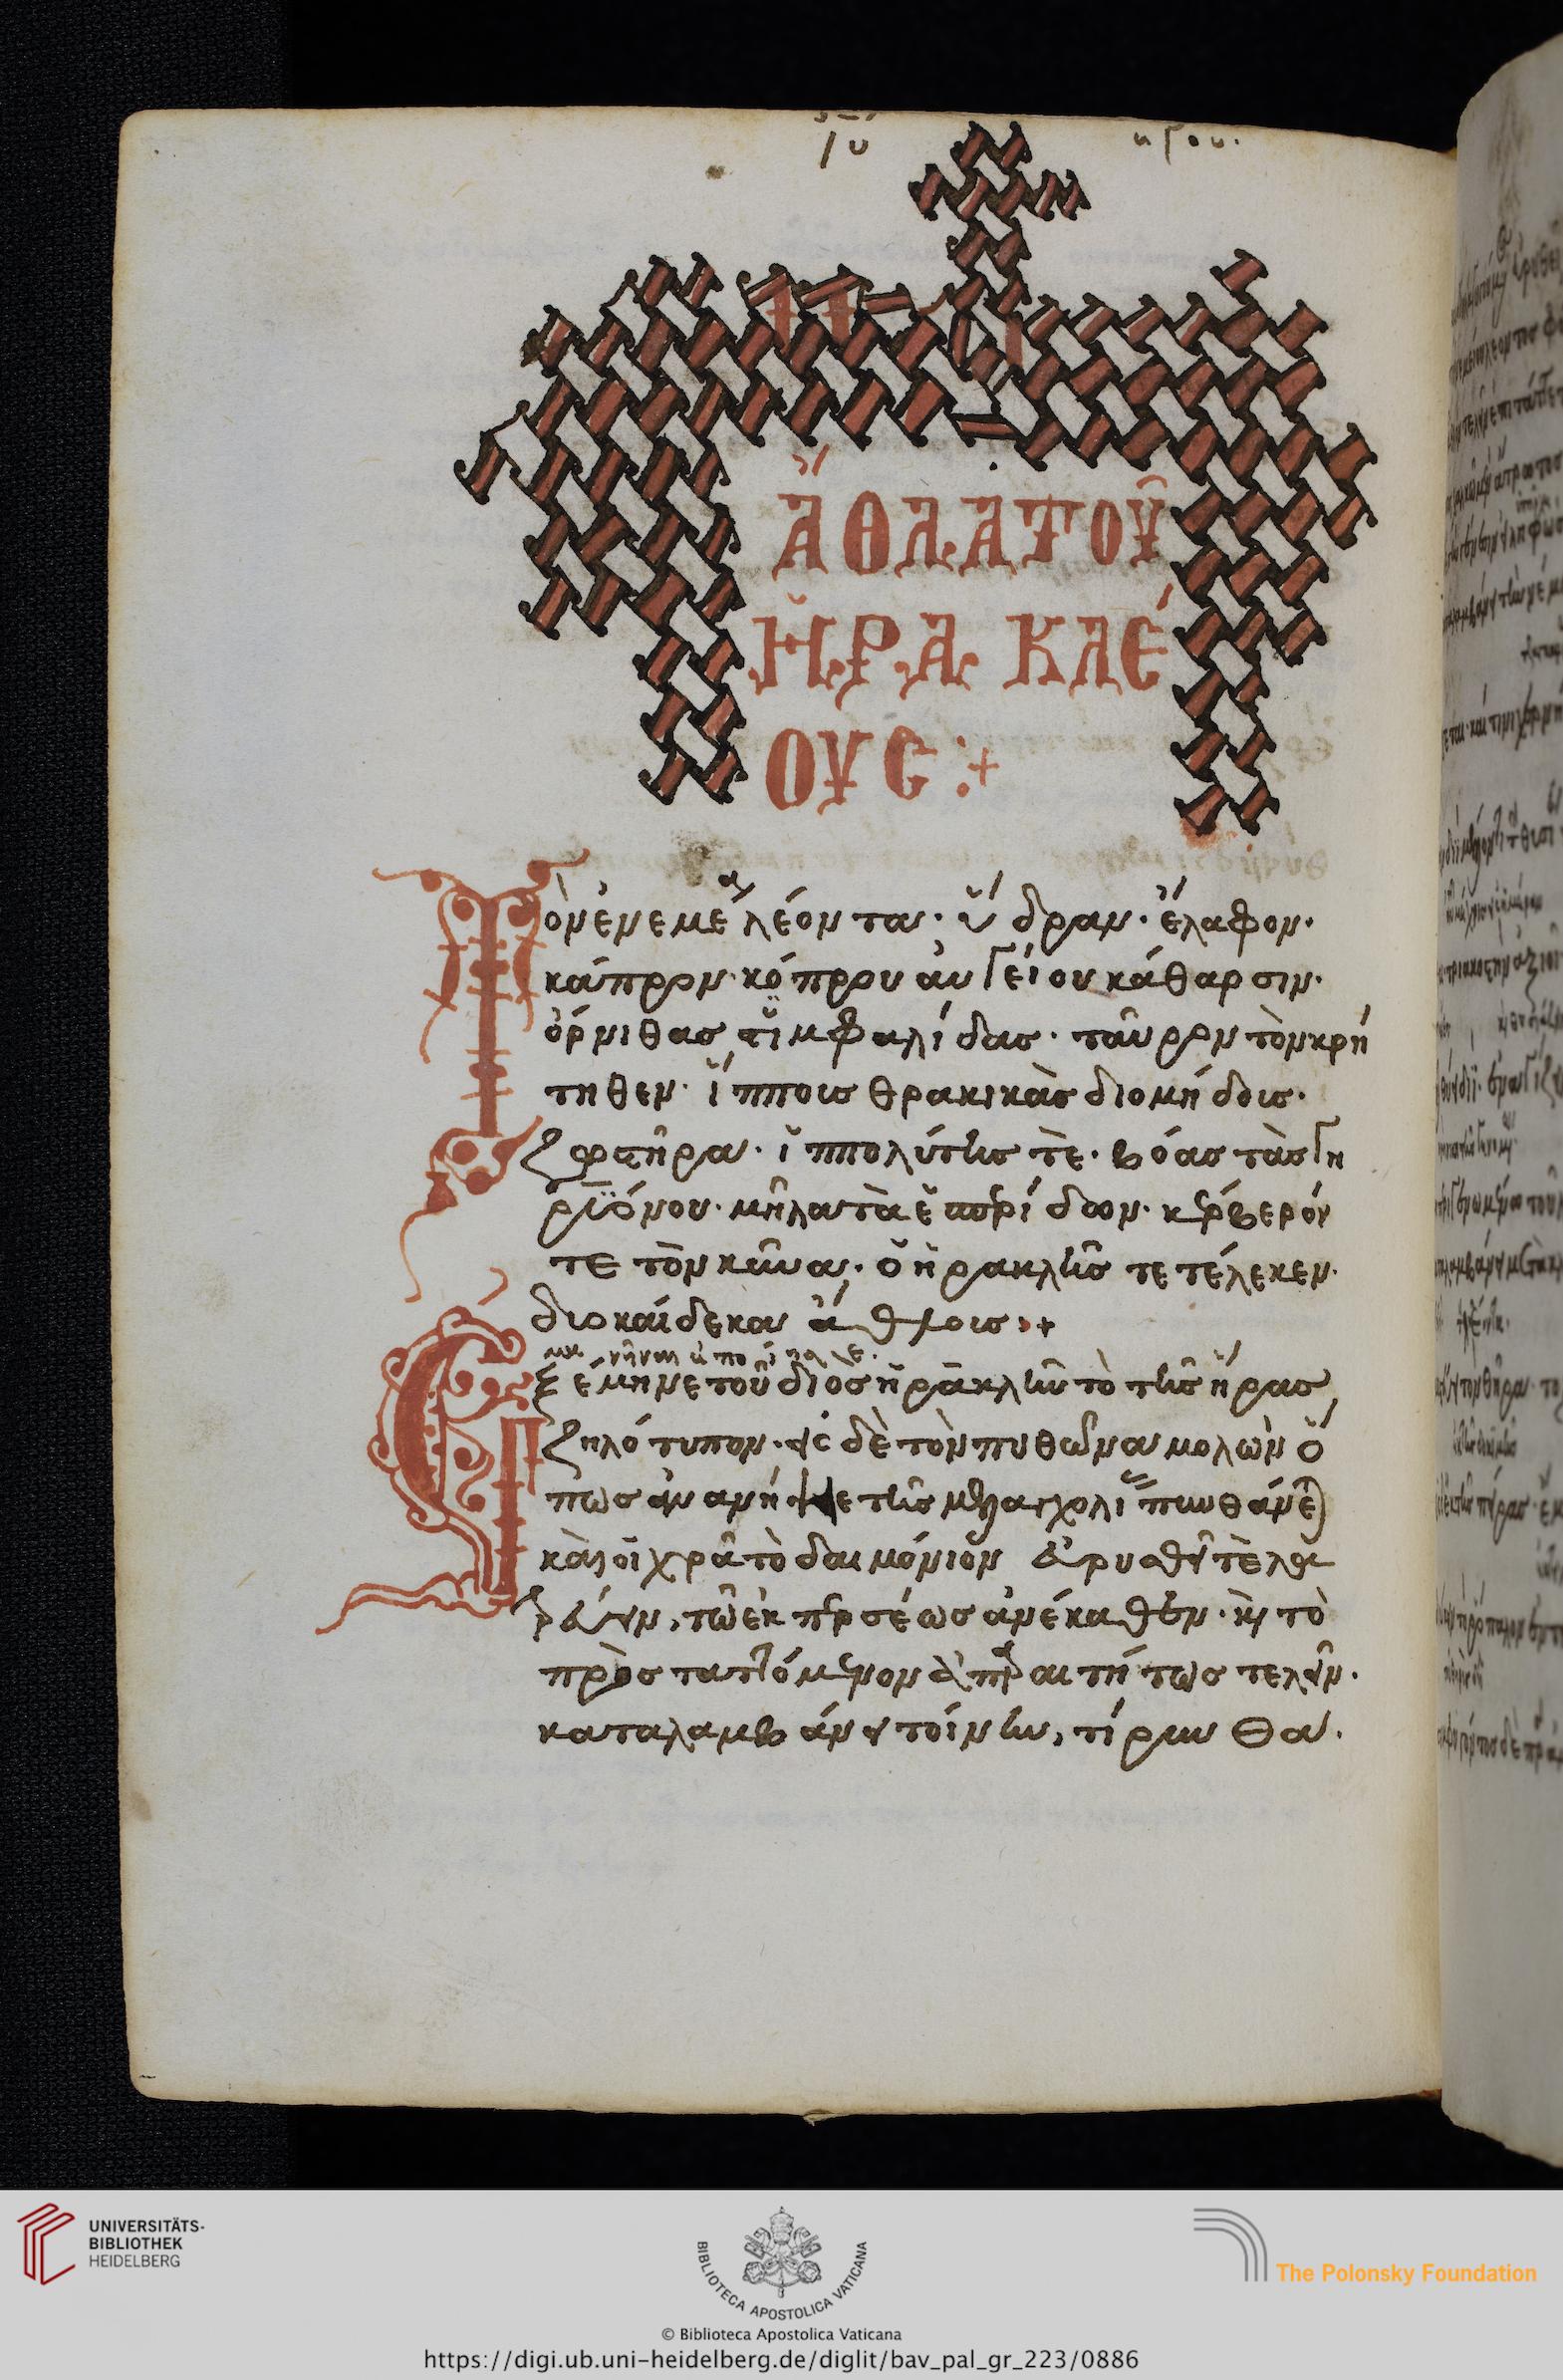 ἆθλα τοῦ
Ἡρακλέ
ους :+
Τὸν ἐν εμέα λέοντα· ὕδραν· ἔλαφον·
κάπρον· κόπρου αὐγείου κάθαρσιν·
ὄρνιθας στϊμφαλίδας· ταῦρον τὸν κρή
τηθεν· ἵππους θρακικὰς διομήδους·
ζωστῆρα· ἱππολύτης τὲ· βόας τὰς γη
ρϋόνου· μῆλα τὰ ἑσπερίδων· κέρβερόν
τε τὸν κῦνα· ὁ ἡρακλῆς τετέλεκεν·
διοκαίδεκα ἄθλοις :+
Ἐξέμηνε τοῦ διὸς ἡρακλῆν τὸ τῆς ἥρας
ζηλότυπον· εἰς δὲ τὸν πυθῶνα μολὼν ὅ
πως ἂν ἀνήψειε τῆς μελαγχολί πυνθάνεται
καὶ οἱ χρᾶ τὸ δαιμόνιον
τῶ ἐκ περσέως ἀνέκαθεν· καὶ τὸ
προστατόμενον ἀπαραιτήτως τελεῖν·
καταλαμβάνει τοίνυν, τίρυνθα·
UNIVERSITÄTS-
BIBLIOTHEK
HEIDELBERG
BIBLIOTECA APOSTOLICA VATICANA
The Polonsky Foundation
© Biblioteca Apostolica Vaticana
https://digi.ub.uni-heidelberg.de/diglit/bav_pal_gr_223/0886